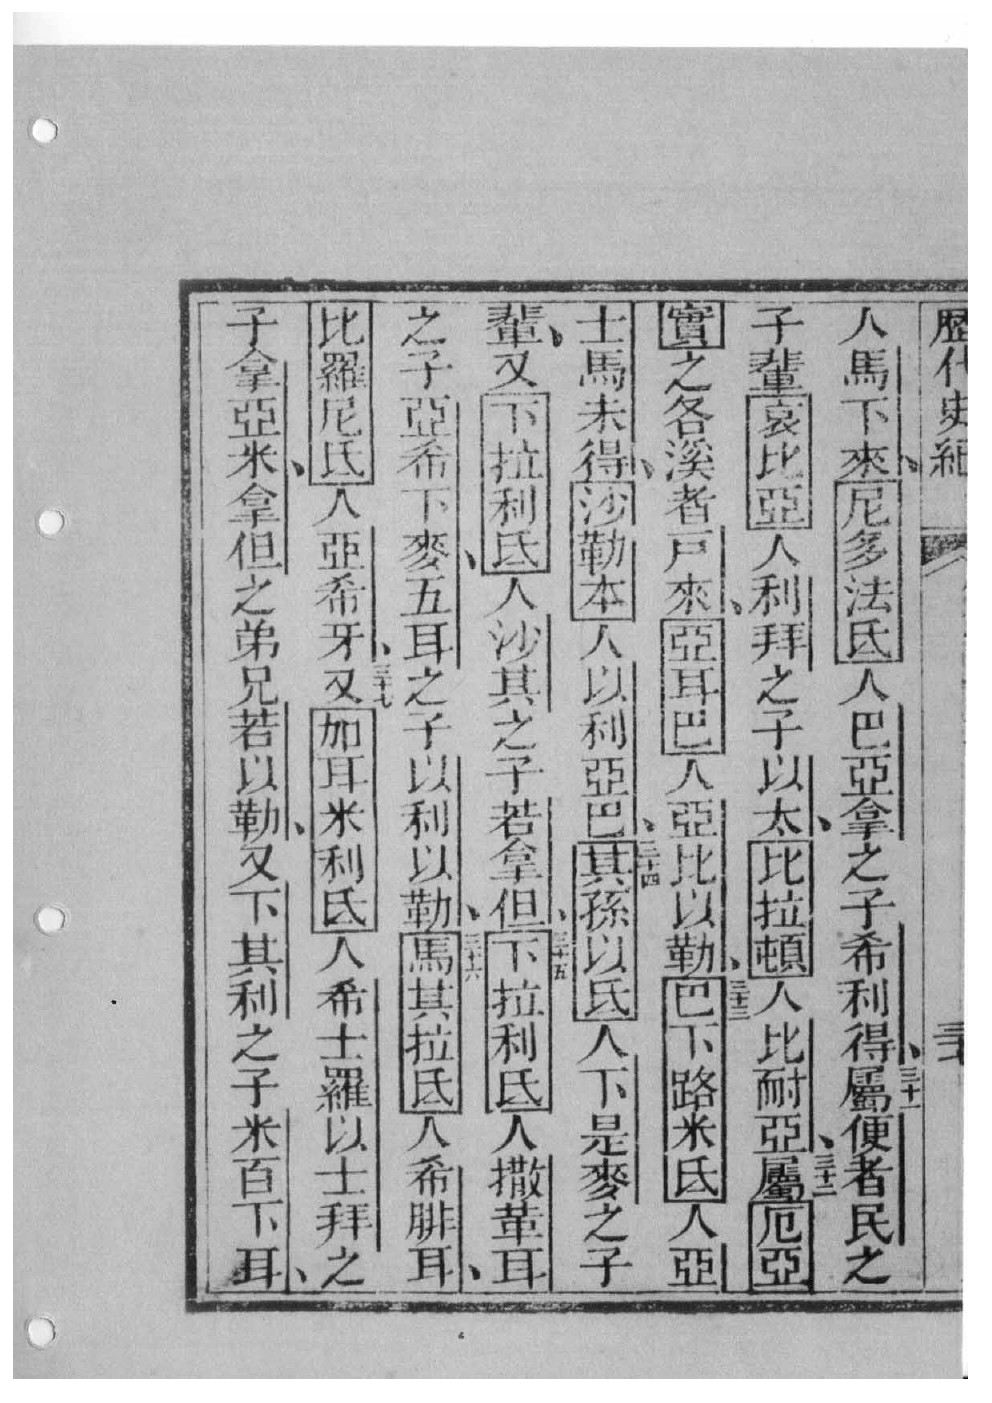 歷代史紀
人馬下來尼多法氐人巴亞拿之子希利得三十一屬便者民之
子輩哀比亞人利拜之子以太比拉頓人比耐亞三十二屬厄亞
實之各溪者戶來亞耳巴人亞比以勒三十三巴下路米氐人亞
士馬未得沙勒本人以利亞巴三十四其孫以氐人下是麥之子
輩又下拉利氐人沙其之子若拿但三十五下拉利氐人撒革耳
之子亞希下麥五耳之子以利以勒三十六馬其拉氐人希腓耳
比羅尼氐人亞希牙三十七又加耳米利氐人希士羅以士拜之
子拿亞米拿但之弟兄若以勒又下其利之子米百下耳